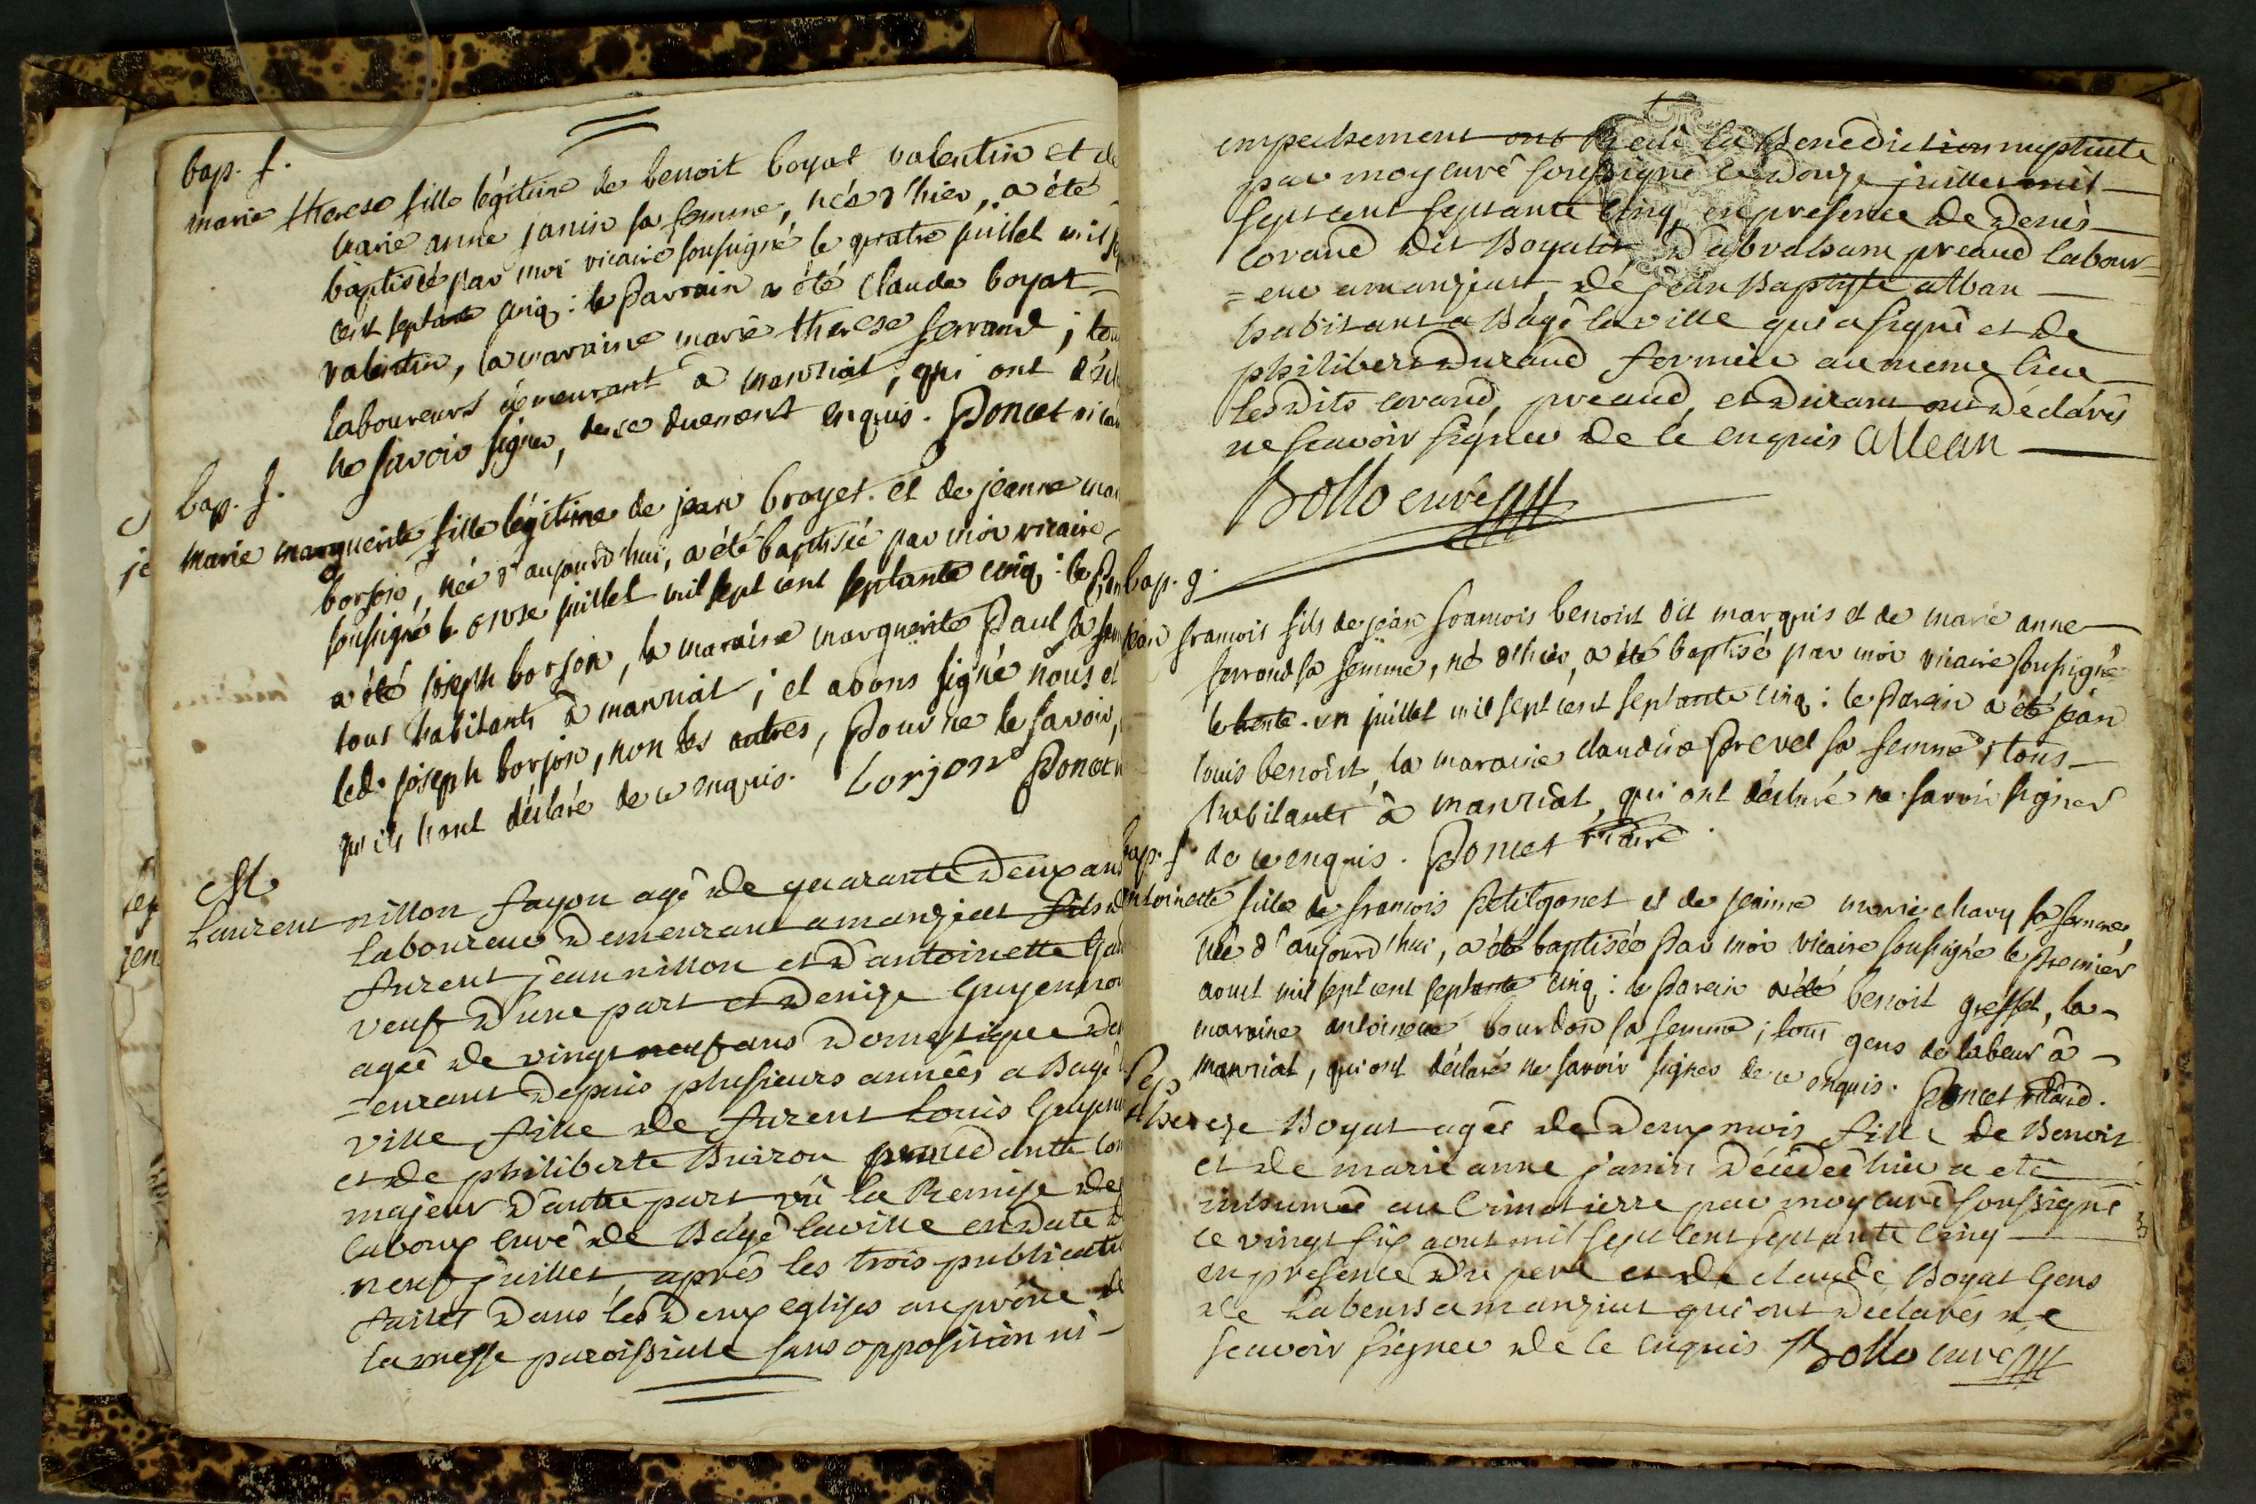 bap. f.
marie therese fille légitime de benoit boyat valentin et de
marie anne janin sa femme, née d'hier, a été
baptisée par moi vicaire soussigné le quatre juillet mil sept
cent septante cinq : le parrain a été claude boyat
valentin, la marraine marie therese ferrand ; tous
laboureurs demeurant a manziat, qui ont déclaré
ne savoir signer, de ce duement enquis. Poncet vicaire
bap. f.
marie marguerite fille légitime de jean broyer et de jeanne marie
borjon, née d'aujourd'hui, a été baptisée par moi vicaire
soussigné le onze juillet mil sept cent septante cinq : le
a été joseph borjon, la maraine marguerite Paul sa femme
tous habitants à manziat ; et avons signé nous et
led. joseph borjon, non les autres, pour ne le savoir,
qu'ils l'ont déclaré de ce enquis. borjon Poncet
M
Laurent nillon fayon agé de quarante deux ans
laboureur demeurant a manziat fils de
furent jean nillon et d'antoinette
veuf d'une part et denize Guyennon
agée de vingt neuf ans domestique dem
=eurant depuis plusieurs années a Bagé la
ville fille de furent Louis Guyennon
et de philiberte Buiron
majeur d'autre part vû la Remise de
curé de Bâgé la ville en date du
neuf juillet après les trois publications
faites dans les deux eglises au prône de
la messe paroissiale sans opposition ni
empechement ont Reçû la Benediction nuptiale
par moy curé soussigné le Douze juillet mil
sept cent septante cinq, en presence de Denis
Corand dit Boyatet d'abraham preaud labour=
=eur a manziat, de jean Baptiste alban
habitant a Bâgé la ville qui a signé et de
philibert Durand fermier au meme lieu
lesdits corand, preaud, et durand ont déclarés
ne scavoir signer de ce enquis allean
Bollo curé
bap. g.
jean francois fils de jean francois benoist dit marquis et de marie anne
ferrand sa femme, né d'hier, a été baptisé par moi vicaire soussigné
le trente-un juillet mil sept cent septante cinq : le parain a été jean
louis benoist, la maraine claudine Prevel sa femme, tous
habitants à manziat, qui ont déclaré ne savoir signer
de ce enquis. Poncet vicaire.
bap. f
antoinette fille de francois Petitjonet et de jeanne marie chavy sa femme,
née d'aujourd'hui, a été baptisée par moi vicaire soussigné le premier
aoust mil sept cent septante cinq : le parain a été benoit greffet, la
maraine antoinette bourdon sa femme ; tous gens de labeur à
manziat, qui ont déclaré ne savoir signer de ce enquis. Poncet vicaire.
Sep
thereze Boyat agée de deux mois fille de Benoit
et de marie anne janin décédée hier a été
inhumée au Cimetierre par moy curé soussigné
ce vingt six aout mil sept cent septante cinq
en presence du pere et de claude Boyat Gens
de Labeurs a manziat qui ont declarés ne
scavoir signer de ce enquis Bollo curé